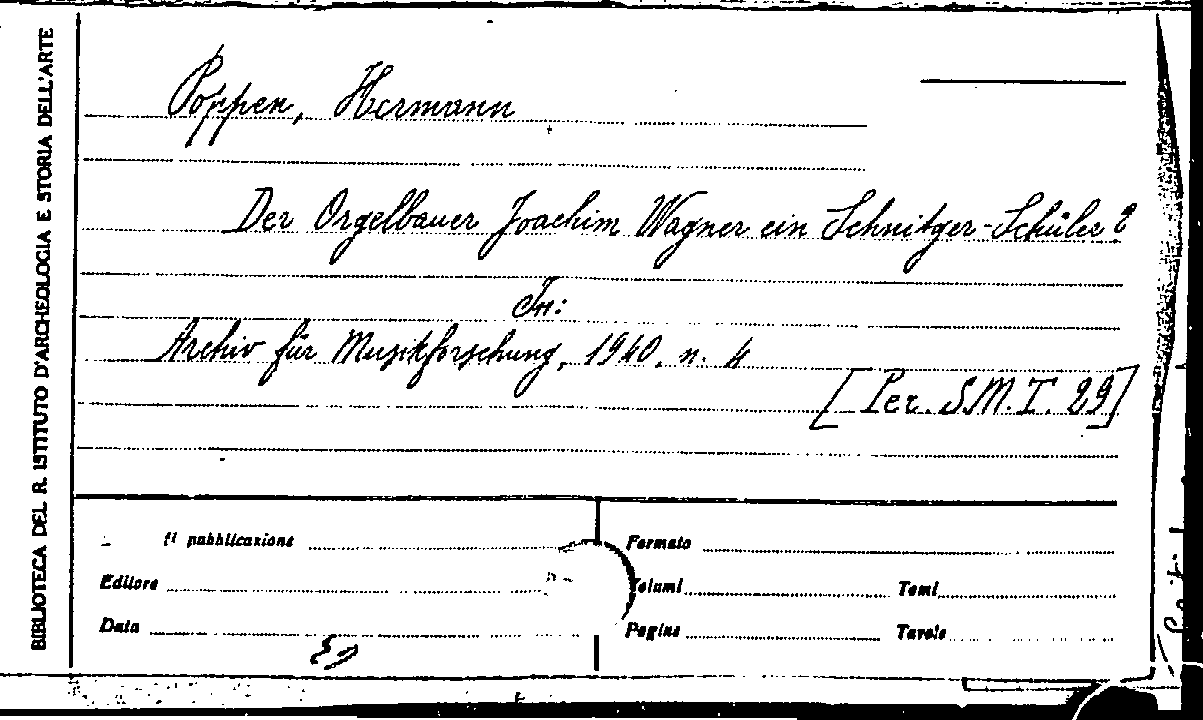 BIBLIOTECA DEL R. ISTITUTO D'ARCHEOLOGIA E STORIA DELL'ARTE
Poppen, Hermann
Der Orgelbauer Joachim Wagner ein Schnitger-Schüler?
In:
Archiv für Musikforschung, 1940, n. 4
[Per. S.M.T. 29]
di pubblicazione
Formato
Editore
Volumi Tomi
Data
Pagine Tavole